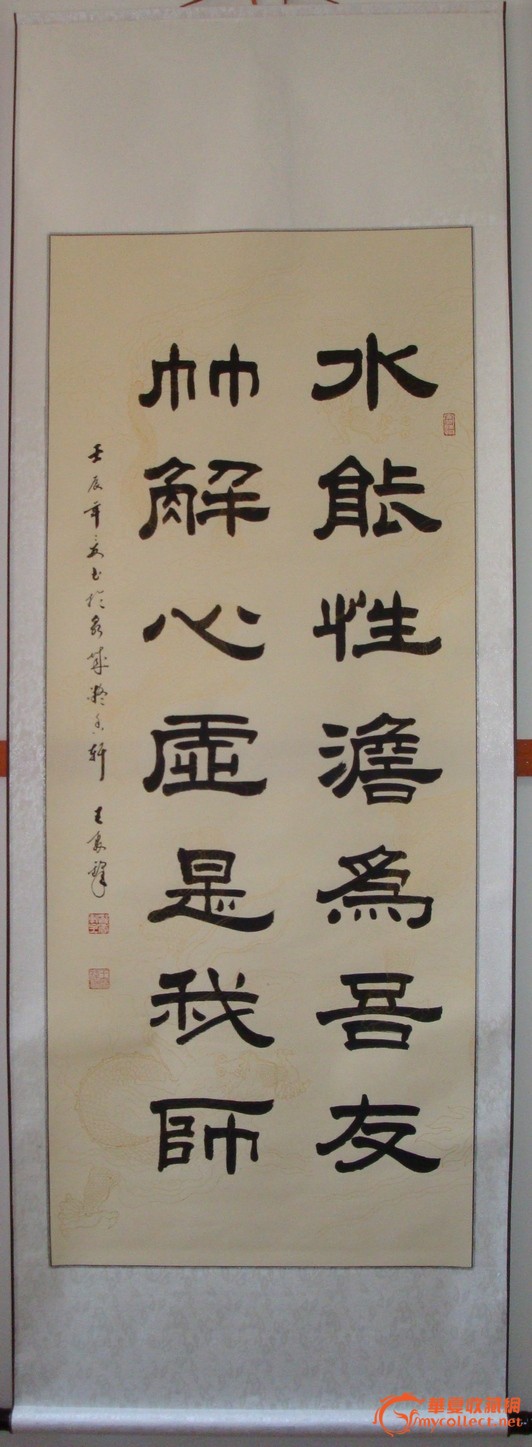 水能性澹為吾友
竹解心虛是我師
壬辰年夏書於泉城聚香軒 王家
華夏收藏網
mycollect.net